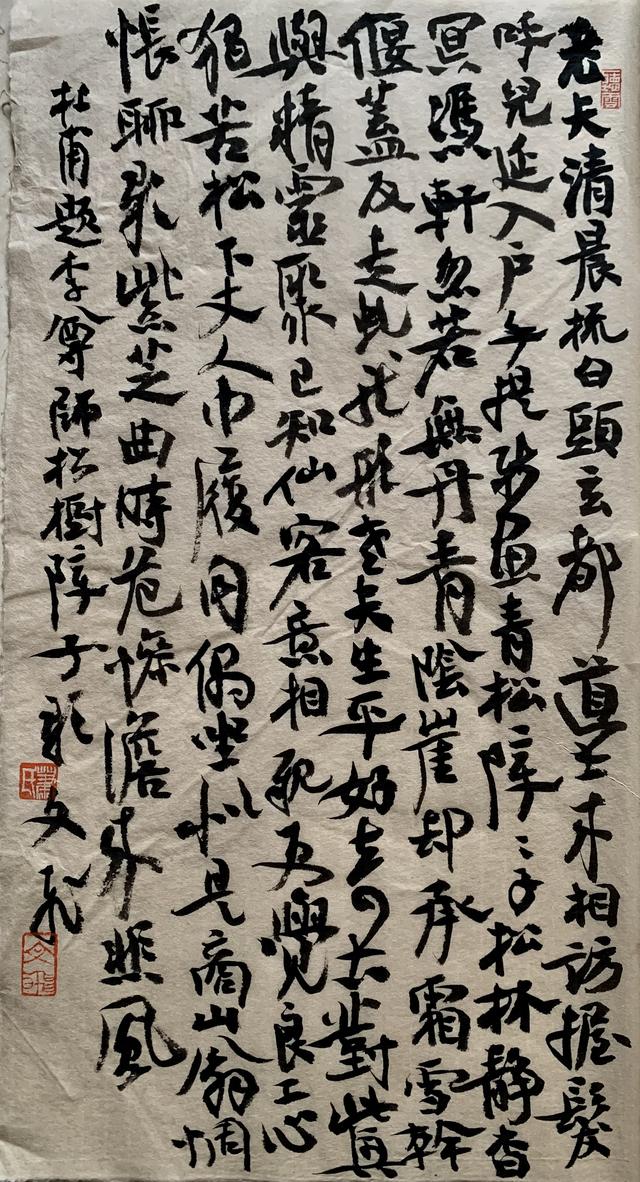 老夫清晨梳白頭玄都道士來相訪握髮
呼兒延入戶手提新畫青松障〻子松林靜杳
冥馮軒忽若無丹青陰崖却承霜雪幹
偃蓋反走虬龍形老夫生平好奇古對此興
與精靈聚已知仙客意相親更覺良工心
獨苦松下丈人巾履同偶坐似是商山翁惆
悵聊歌紫芝曲時危慘澹來悲風
杜甫題李尊師松樹障子歌文飛
蕭氏
文飛